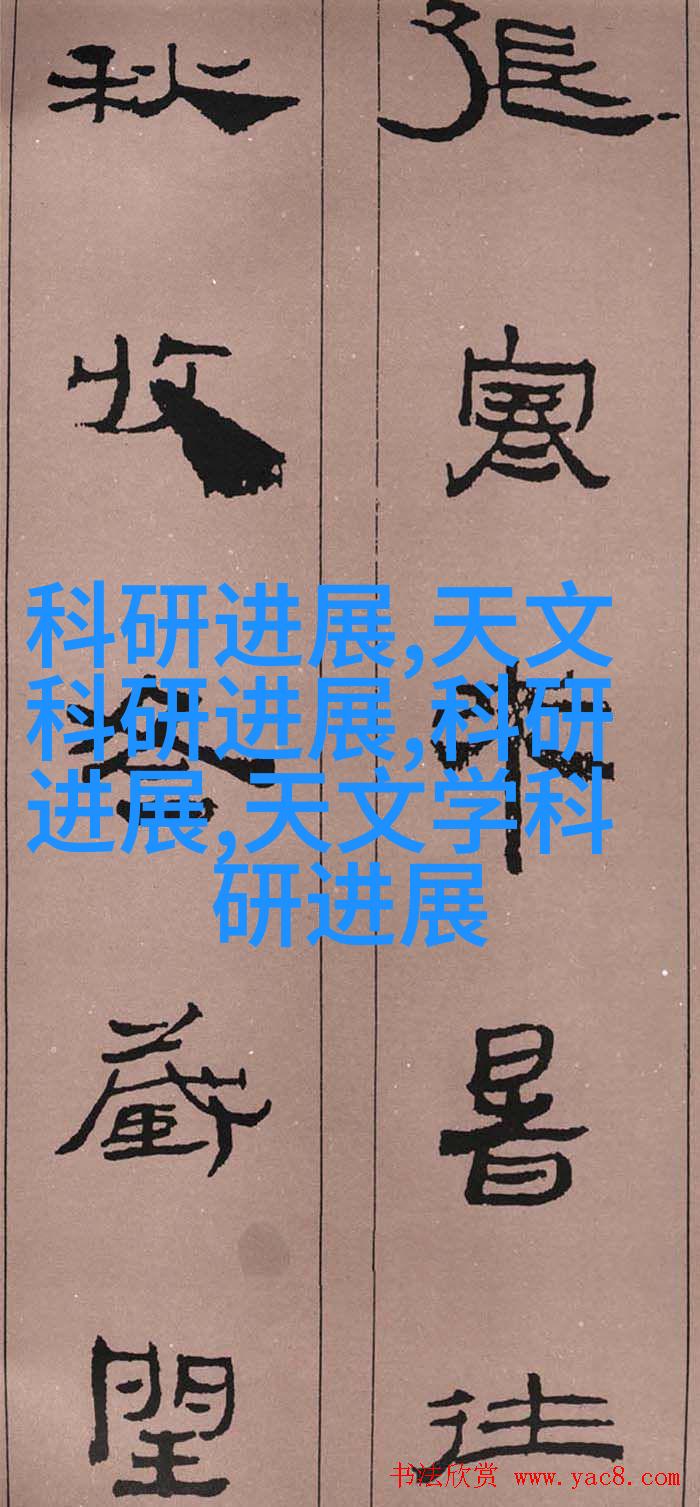 張寒來暑往
秋收冬藏閏
科研进展,天文
科研进展,科研
进展,天文学科
研进展
书法欣赏 www.yac8.com